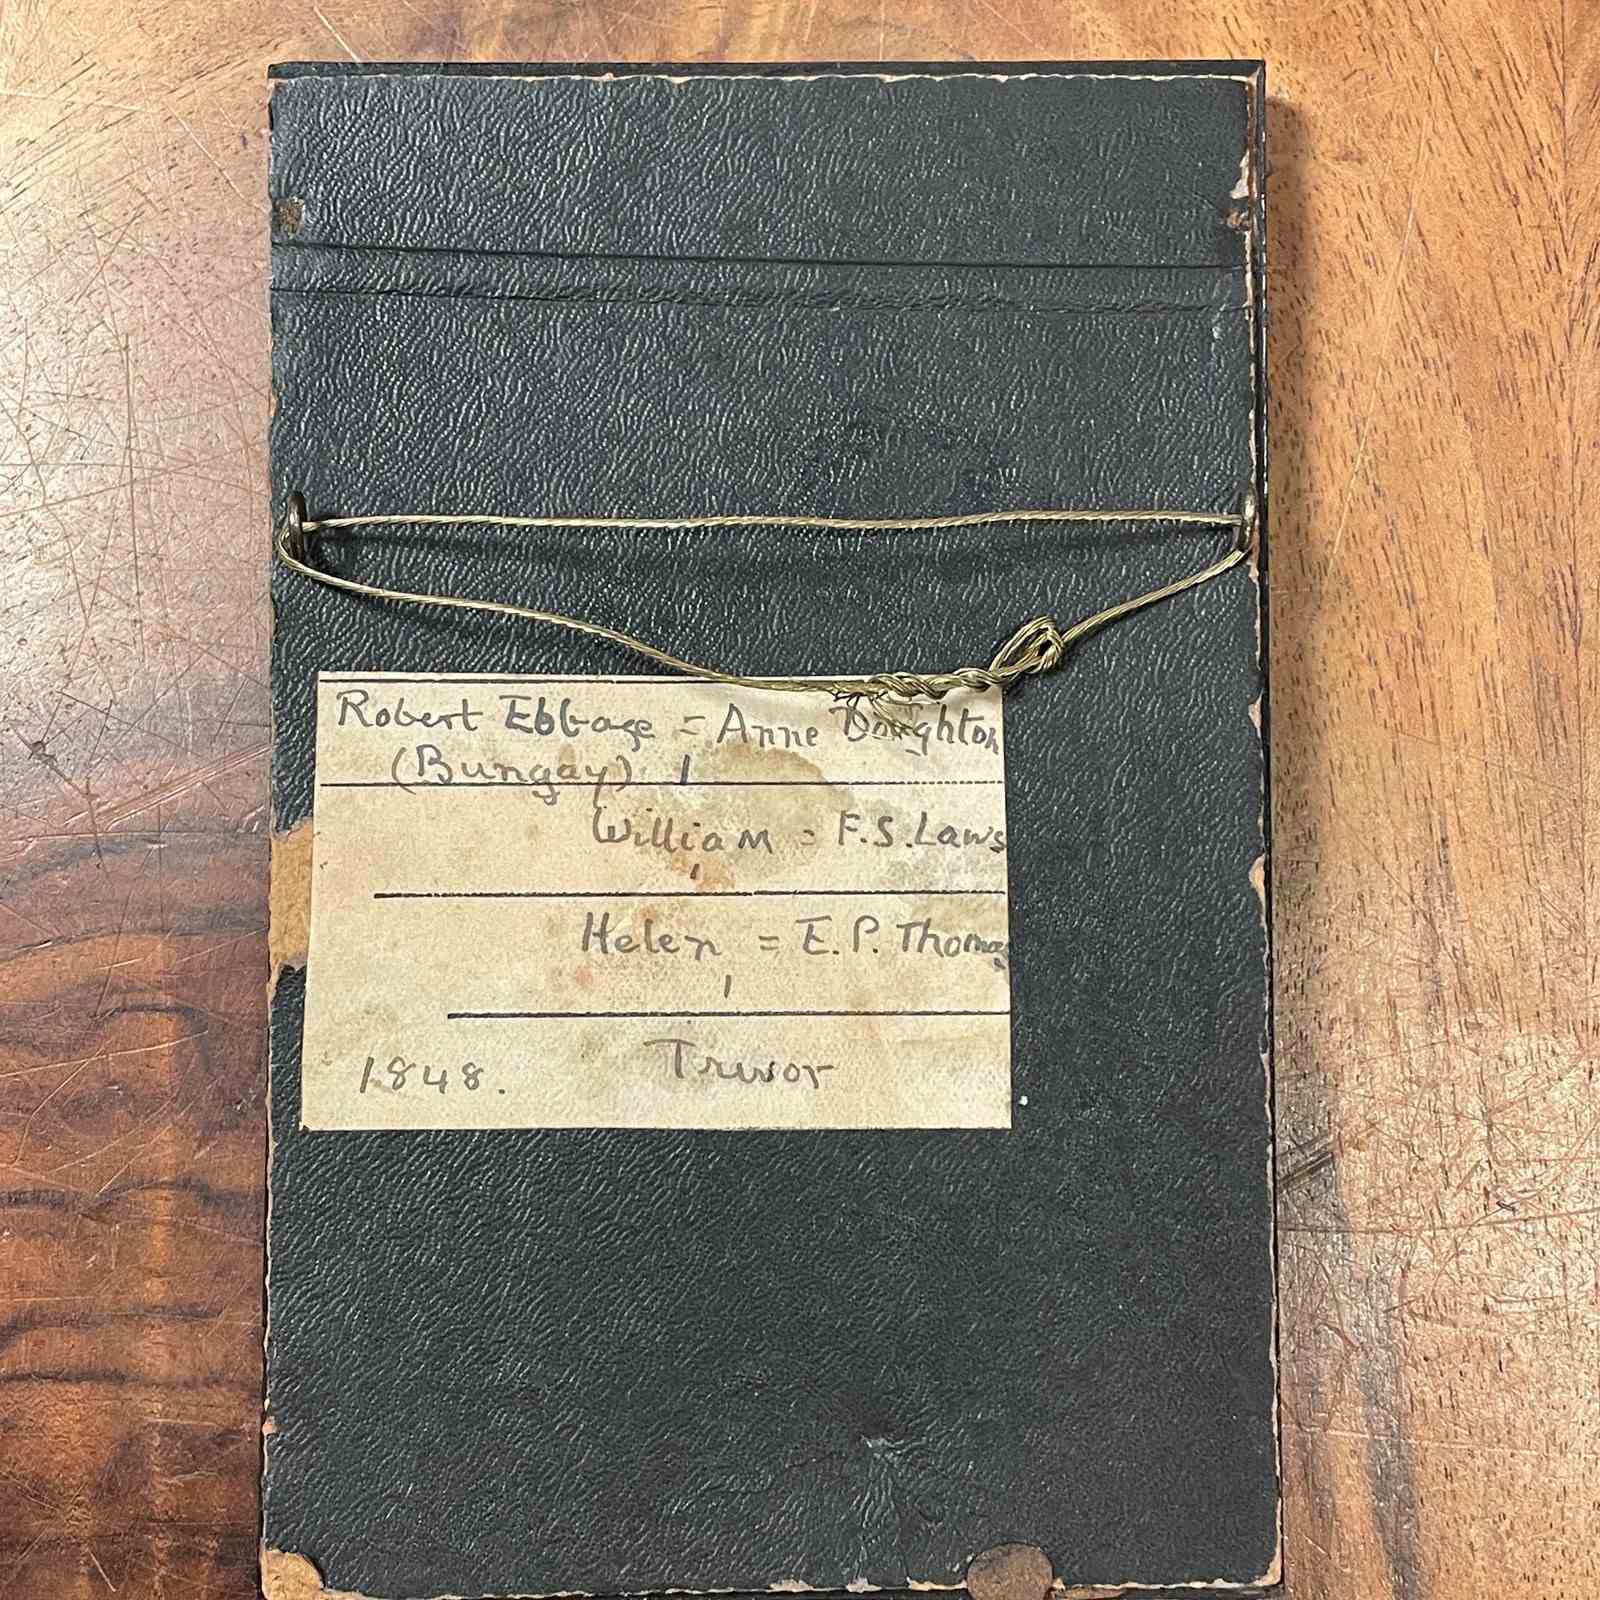 Robert Ebbage = Anne Doughton
(Bungay)
William = F.S. Laws
Helen = E.P. Thomas
Trevor
1848.